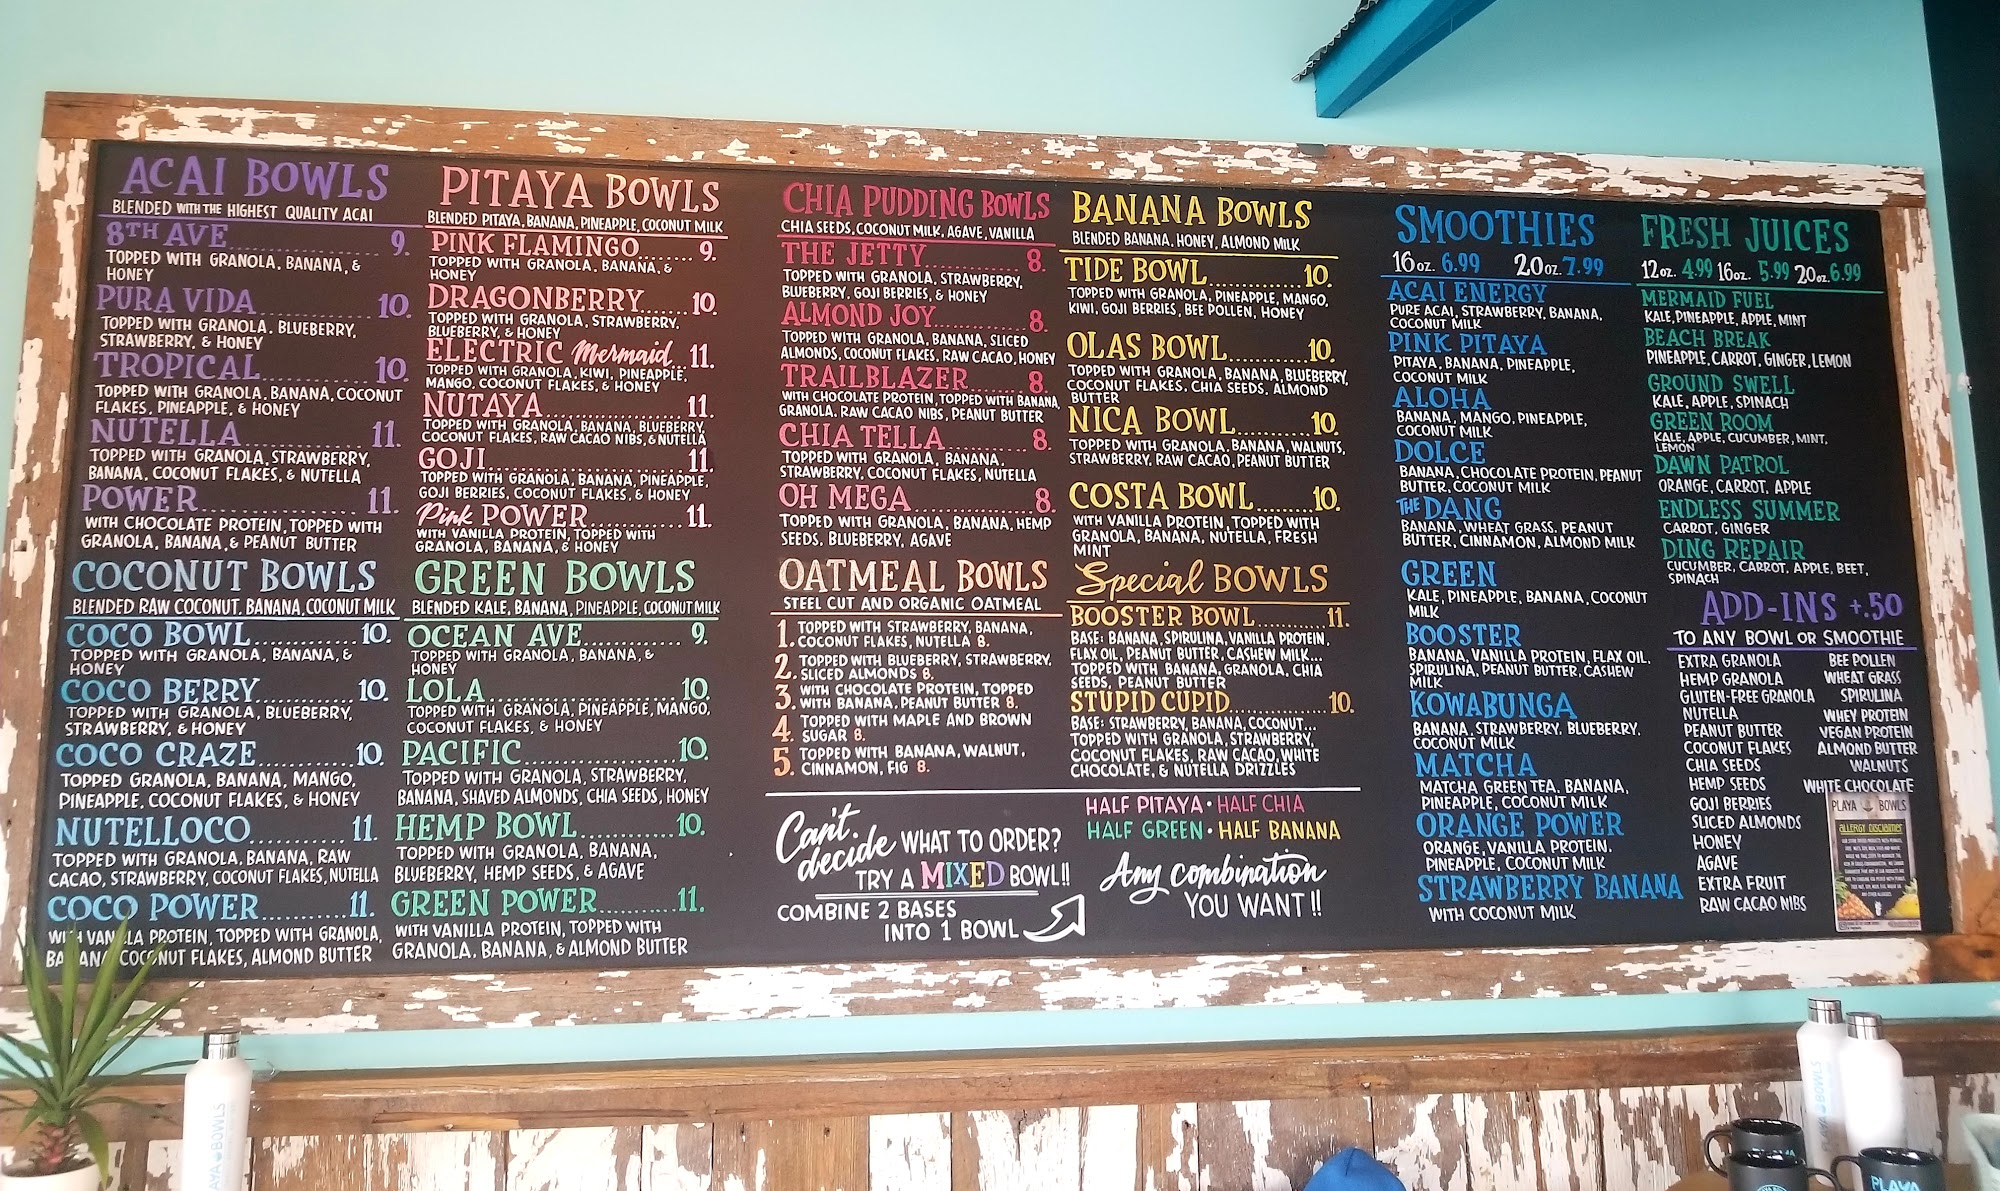 ACAI BOWLS
BLENDED WITH THE HIGHEST QUALITY ACAI
8TH AVE.................. 9.
TOPPED WITH GRANOLA, BANANA, &
HONEY
PURA VIDA............... 10.
TOPPED WITH GRANOLA, BLUEBERRY,
STRAWBERRY, & HONEY
TROPICAL............... 10.
TOPPED WITH GRANOLA, BANANA, COCONUT
FLAKES, PINEAPPLE, & HONEY
NUTELLA............... 11.
TOPPED WITH GRANOLA, STRAWBERRY,
BANANA, COCONUT FLAKES, & NUTELLA
POWER.................... 11.
WITH CHOCOLATE PROTEIN, TOPPED WITH
GRANOLA, BANANA, & PEANUT BUTTER
COCONUT BOWLS
BLENDED RAW COCONUT, BANANA, COCONUT MILK
COCO BOWL............ 10.
TOPPED WITH GRANOLA, BANANA, &
HONEY
COCO BERRY........... 10.
TOPPED WITH GRANOLA, BLUEBERRY,
STRAWBERRY, & HONEY
COCO CRAZE........... 10.
TOPPED GRANOLA, BANANA, MANGO,
PINEAPPLE, COCONUT FLAKES, & HONEY
NUTELLOCO............ 11.
TOPPED WITH GRANOLA, BANANA, RAW
CACAO, STRAWBERRY, COCONUT FLAKES, NUTELLA
COCO POWER........... 11.
WITH VANILLA PROTEIN, TOPPED WITH GRANOLA,
BANANA, COCONUT FLAKES, ALMOND BUTTER
PITAYA BOWLS
BLENDED PITAYA, BANANA, PINEAPPLE, COCONUT MILK
PINK FLAMINGO....... 9.
TOPPED WITH GRANOLA, BANANA, &
HONEY
DRAGONBERRY...... 10.
TOPPED WITH GRANOLA, STRAWBERRY,
BLUEBERRY, & HONEY
ELECTRIC Mermaid.. 11.
TOPPED WITH GRANOLA, KIWI, PINEAPPLE,
MANGO, COCONUT FLAKES, & HONEY
NUTAYA.................. 11.
TOPPED WITH GRANOLA, BANANA, BLUEBERRY,
COCONUT FLAKES, RAW CACAO NIBS, & NUTELLA
GOJI......................... 11.
TOPPED WITH GRANOLA, BANANA, PINEAPPLE,
GOJI BERRIES, COCONUT FLAKES, & HONEY
Pink POWER............ 11.
WITH VANILLA PROTEIN, TOPPED WITH
GRANOLA, BANANA, & HONEY
GREEN BOWLS
BLENDED KALE, BANANA, PINEAPPLE, COCONUT MILK
OCEAN AVE............. 9.
TOPPED WITH GRANOLA, BANANA, &
HONEY
LOLA....................... 10.
TOPPED WITH GRANOLA, PINEAPPLE, MANGO,
COCONUT FLAKES, & HONEY
PACIFIC.................. 10.
TOPPED WITH GRANOLA, STRAWBERRY,
BANANA, SHAVED ALMONDS, CHIA SEEDS, HONEY
HEMP BOWL........... 10.
TOPPED WITH GRANOLA, BANANA,
BLUEBERRY, HEMP SEEDS, & AGAVE
GREEN POWER.......... 11.
WITH VANILLA PROTEIN, TOPPED WITH
GRANOLA, BANANA, & ALMOND BUTTER
CHIA PUDDING BOWLS
CHIA SEEDS, COCONUT MILK, AGAVE, VANILLA
THE JETTY............. 8.
TOPPED WITH GRANOLA, STRAWBERRY,
BLUEBERRY, GOJI BERRIES, & HONEY
ALMOND JOY............ 8.
TOPPED WITH GRANOLA, BANANA, SLICED
ALMONDS, COCONUT FLAKES, RAW CACAO, HONEY
TRAILBLAZER........ 8.
WITH CHOCOLATE PROTEIN, TOPPED WITH BANANA,
GRANOLA, RAW CACAO NIBS, PEANUT BUTTER
CHIA TELLA........... 8.
TOPPED WITH GRANOLA, BANANA,
STRAWBERRY, COCONUT FLAKES, NUTELLA
OH MEGA............... 8.
TOPPED WITH GRANOLA, BANANA, HEMP
SEEDS, BLUEBERRY, AGAVE
OATMEAL BOWLS
STEEL CUT AND ORGANIC OATMEAL
1. TOPPED WITH STRAWBERRY, BANANA,
COCONUT FLAKES, NUTELLA 8.
2. TOPPED WITH BLUEBERRY, STRAWBERRY,
SLICED ALMONDS 8.
3. WITH CHOCOLATE PROTEIN, TOPPED
WITH BANANA, PEANUT BUTTER 8.
4. TOPPED WITH MAPLE AND BROWN
SUGAR 8.
5. TOPPED WITH BANANA, WALNUT,
CINNAMON, FIG 8.
BANANA BOWLS
BLENDED BANANA, HONEY, ALMOND MILK
TIDE BOWL............ 10.
TOPPED WITH GRANOLA, PINEAPPLE, MANGO,
KIWI, GOJI BERRIES, BEE POLLEN, HONEY
OLAS BOWL.......... 10.
TOPPED WITH GRANOLA, BANANA, BLUEBERRY,
COCONUT FLAKES, CHIA SEEDS, ALMOND
BUTTER
NICA BOWL.......... 10.
TOPPED WITH GRANOLA, BANANA, WALNUTS,
STRAWBERRY, RAW CACAO, PEANUT BUTTER
COSTA BOWL........ 10.
WITH VANILLA PROTEIN, TOPPED WITH
GRANOLA, BANANA, NUTELLA, FRESH
MINT
Special BOWLS
BOOSTER BOWL........... 11.
BASE: BANANA, SPIRULINA, VANILLA PROTEIN,
FLAX OIL, PEANUT BUTTER, CASHEW MILK...
TOPPED WITH BANANA, GRANOLA, CHIA
SEEDS, PEANUT BUTTER
STUPID CUPID............... 10.
BASE: STRAWBERRY, BANANA, COCONUT...
TOPPED WITH GRANOLA, STRAWBERRY,
COCONUT FLAKES, RAW CACAO, WHITE
CHOCOLATE, & NUTELLA DRIZZLES
Can't decide WHAT TO ORDER?
TRY A MIXED BOWL!!
COMBINE 2 BASES
INTO 1 BOWL
HALF PITAYA • HALF CHIA
HALF GREEN • HALF BANANA
Any combination
YOU WANT!!
SMOOTHIES
16 oz. 6.99 20 oz. 7.99
ACAI ENERGY
PURE ACAI, STRAWBERRY, BANANA,
COCONUT MILK
PINK PITAYA
PITAYA, BANANA, PINEAPPLE,
COCONUT MILK
ALOHA
BANANA, MANGO, PINEAPPLE,
COCONUT MILK
DOLCE
BANANA, CHOCOLATE PROTEIN, PEANUT
BUTTER, COCONUT MILK
THE DANG
BANANA, WHEAT GRASS, PEANUT
BUTTER, CINNAMON, ALMOND MILK
GREEN
KALE, PINEAPPLE, BANANA, COCONUT
MILK
BOOSTER
BANANA, VANILLA PROTEIN, FLAX OIL,
SPIRULINA, PEANUT BUTTER, CASHEW
MILK
KOWABUNGA
BANANA, STRAWBERRY, BLUEBERRY,
COCONUT MILK
MATCHA
MATCHA GREEN TEA, BANANA,
PINEAPPLE, COCONUT MILK
ORANGE POWER
ORANGE, VANILLA PROTEIN,
PINEAPPLE, COCONUT MILK
STRAWBERRY BANANA
WITH COCONUT MILK
FRESH JUICES
12 oz. 4.99 16 oz. 5.99 20 oz. 6.99
MERMAID FUEL
KALE, PINEAPPLE, APPLE, MINT
BEACH BREAK
PINEAPPLE, CARROT, GINGER, LEMON
GROUND SWELL
KALE, APPLE, SPINACH
GREEN ROOM
KALE, APPLE, CUCUMBER, MINT,
LEMON
DAWN PATROL
ORANGE, CARROT, APPLE
ENDLESS SUMMER
CARROT, GINGER
DING REPAIR
CUCUMBER, CARROT, APPLE, BEET,
SPINACH
ADD-INS +.50
TO ANY BOWL OR SMOOTHIE
EXTRA GRANOLA
HEMP GRANOLA
GLUTEN-FREE GRANOLA
NUTELLA
PEANUT BUTTER
COCONUT FLAKES
CHIA SEEDS
HEMP SEEDS
GOJI BERRIES
SLICED ALMONDS
HONEY
AGAVE
EXTRA FRUIT
RAW CACAO NIBS
BEE POLLEN
WHEAT GRASS
SPIRULINA
WHEY PROTEIN
VEGAN PROTEIN
ALMOND BUTTER
WALNUTS
WHITE CHOCOLATE
PLAYA BOWLS
ALLERGY DISCLAIMER
PLAYA BOWLS
PLAYA BOWLS
PLAYA